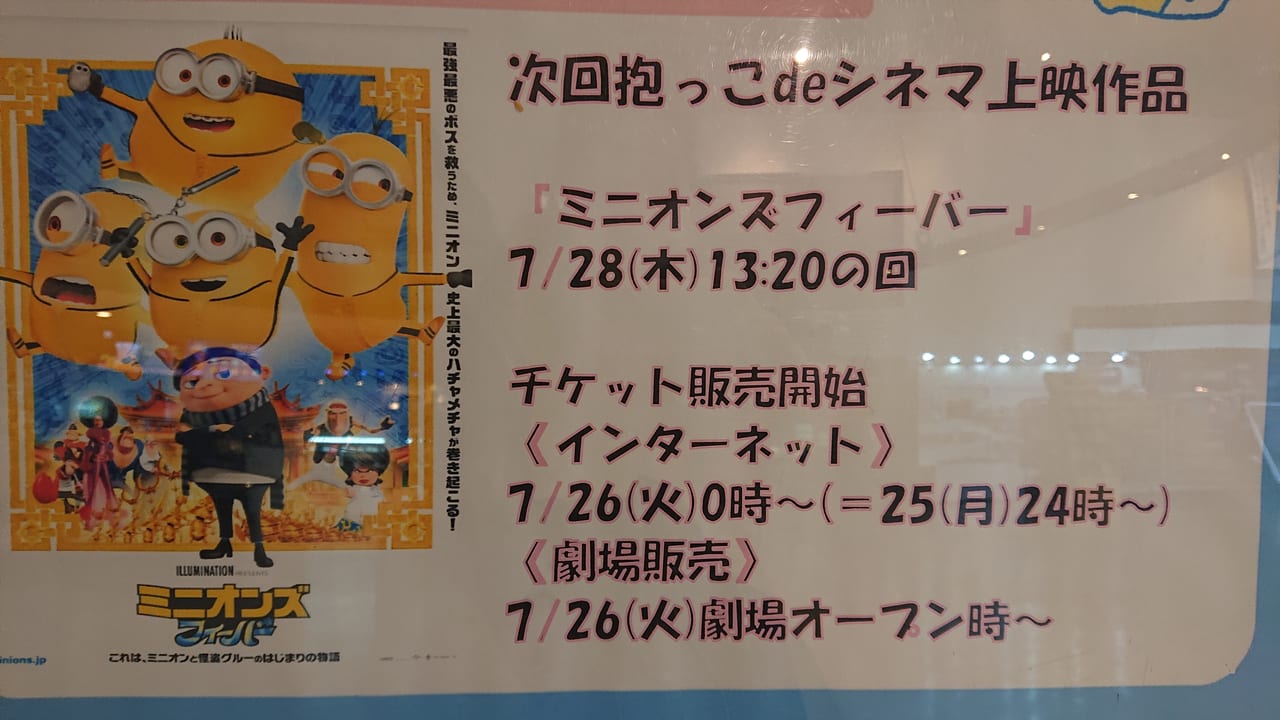 最強最悪のボスを救うため、ミニオン史上最大のハチャメチャが巻き起こる!
ILLUMINATION PRESENTS
ミニオンズ
フィーバー
これは、ミニオンと怪盗グルーのはじまりの物語
inions.jp
次回抱っこdeシネマ上映作品
『ミニオンズフィーバー』
7/28(木)13:20の回
チケット販売開始
《インターネット》
7/26(火)0時~(=25(月)24時~)
《劇場販売》
7/26(火)劇場オープン時~